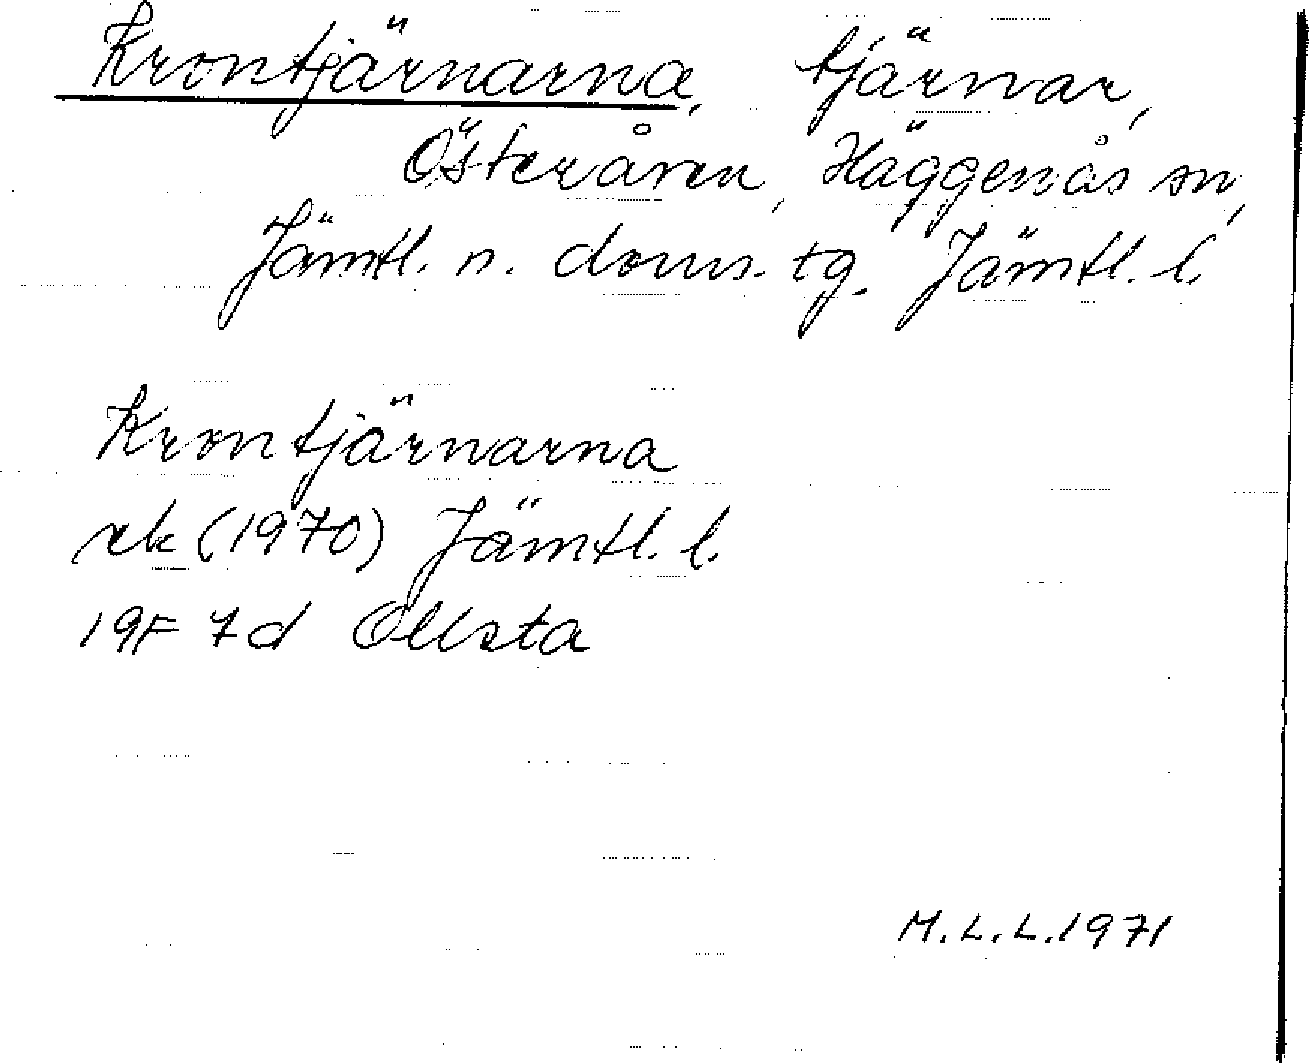 Krontjärnarna, tjärnar,
Österåren, Häggenås sn,
Jämtl. n. doms. tg. Jämtl. l.
Krontjärnarna
ek (1970) Jämtl. l.
19F 7d Ollsta
M.L.L. 1971